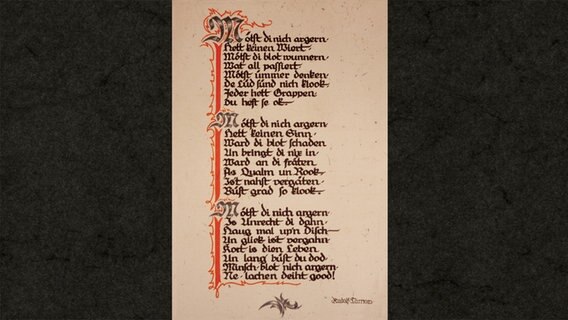 Mötst di nich argern
Hett keinen Wiert.
Mötst di blot wunnern
Wat all passiert.
Mötst ümmer denken
De Lüd sünd nich klook.
Jeder hett Grappen
Du hest se ok.
Mötst di nich argern.
Hett keinen Sinn.
Ward di blot schaden
Un bringt di nix in
Ward an di fräten
As Qualm un Rook.
Ist nahst vergäten.
Büst grad so klook.
Mötst di nich argern
Is Unrecht di dahn.
Haug mal up'n Disch
Un gliek ist vergahn
Kort is dien Leben
Un lang büst du dod.
Minsch blot nich argern.
Ne. lachen deiht good!
Rudolf Tarnow